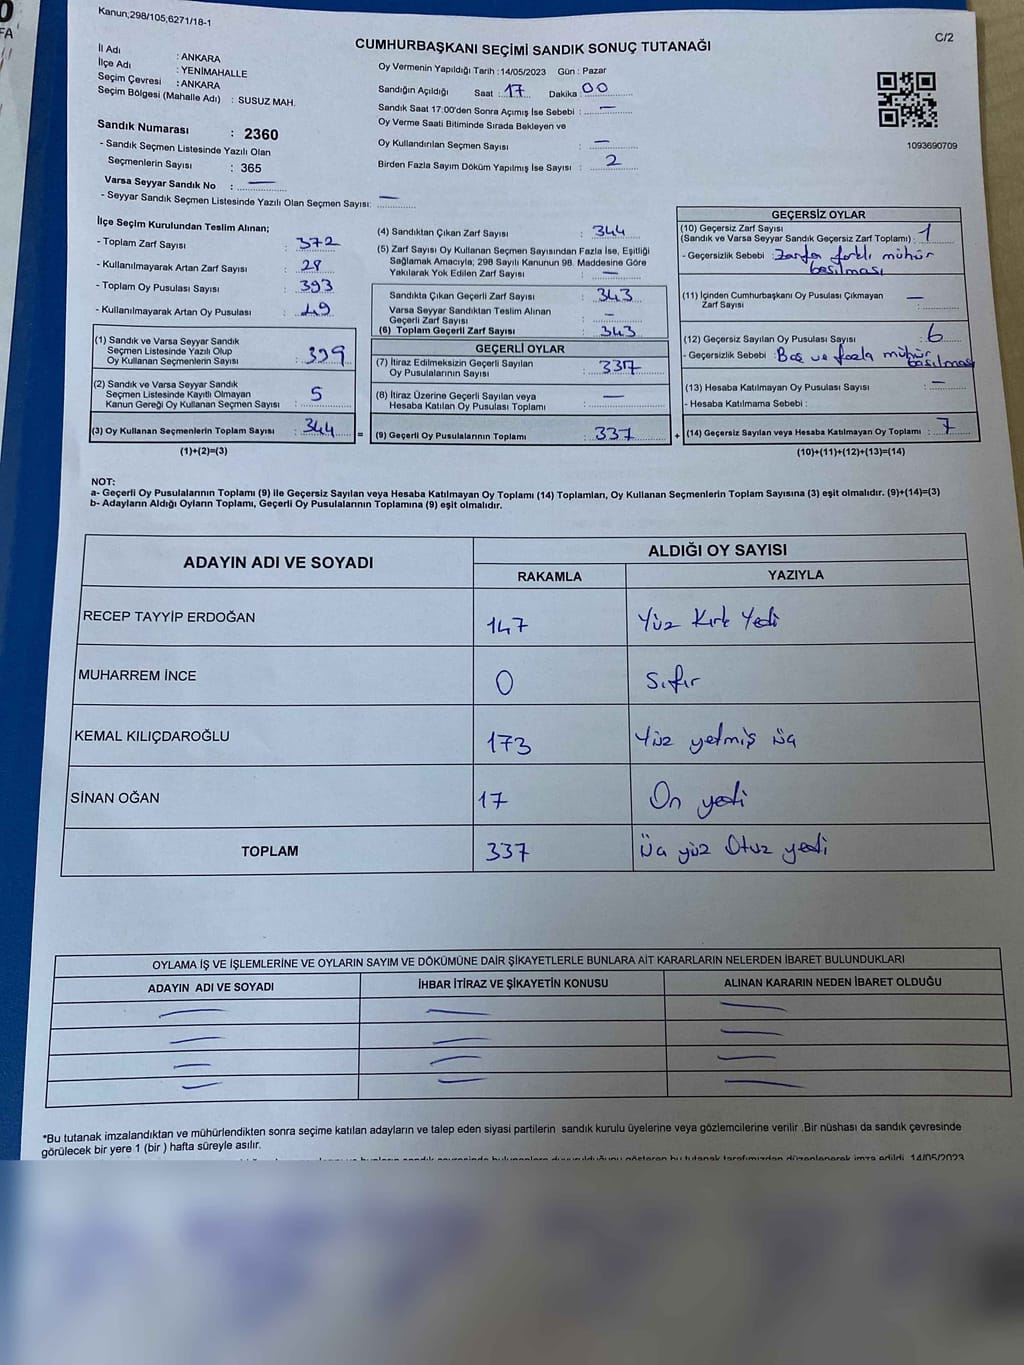 Kanun;298/105,6271/18-1
C/2
CUMHURBAŞKANI SEÇİMİ SANDIK SONUÇ TUTANAĞI
İl Adı : ANKARA
İlçe Adı : YENİMAHALLE
Seçim Çevresi : ANKARA
Seçim Bölgesi (Mahalle Adı) : SUSUZ MAH.
Sandık Numarası : 2360
- Sandık Seçmen Listesinde Yazılı Olan
Seçmenlerin Sayısı : 365
Varsa Seyyar Sandık No : —
- Seyyar Sandık Seçmen Listesinde Yazılı Olan Seçmen Sayısı: —
Oy Vermenin Yapıldığı Tarih : 14/05/2023 Gün : Pazar
Sandığın Açıldığı Saat : 17 Dakika 00
Sandık Saat 17:00'den Sonra Açımış İse Sebebi : —
Oy Verme Saati Bitiminde Sırada Bekleyen ve
Oy Kullandırılan Seçmen Sayısı : —
Birden Fazla Sayım Döküm Yapılmış İse Sayısı : 2
1093690709
İlçe Seçim Kurulundan Teslim Alınan;
- Toplam Zarf Sayısı : 372
- Kullanılmayarak Artan Zarf Sayısı : 28
- Toplam Oy Pusulası Sayısı : 393
- Kullanılmayarak Artan Oy Pusulası : 49
(1) Sandık ve Varsa Seyyar Sandık
Seçmen Listesinde Yazılı Olup
Oy Kullanan Seçmenlerin Sayısı : 339
(2) Sandık ve Varsa Seyyar Sandık
Seçmen Listesinde Kayıtlı Olmayan
Kanun Gereği Oy Kullanan Seçmen Sayısı : 5
(3) Oy Kullanan Seçmenlerin Toplam Sayısı : 344
(1)+(2)=(3)
(4) Sandıktan Çıkan Zarf Sayısı : 344
(5) Zarf Sayısı Oy Kullanan Seçmen Sayısından Fazla İse, Eşitliği
Sağlamak Amacıyla; 298 Sayılı Kanunun 98. Maddesine Göre
Yakılarak Yok Edilen Zarf Sayısı : —
Sandıkta Çıkan Geçerli Zarf Sayısı : 343
Varsa Seyyar Sandıktan Teslim Alınan
Geçerli Zarf Sayısı : —
(6) Toplam Geçerli Zarf Sayısı : 343
GEÇERLİ OYLAR
(7) İtiraz Edilmeksizin Geçerli Sayılan
Oy Pusulalarının Sayısı : 337
(8) İtiraz Üzerine Geçerli Sayılan veya
Hesaba Katılan Oy Pusulası Toplamı : —
= (9) Geçerli Oy Pusulalarının Toplamı : 337
GEÇERSİZ OYLAR
(10) Geçersiz Zarf Sayısı
(Sandık ve Varsa Seyyar Sandık Geçersiz Zarf Toplamı) : 1
- Geçersizlik Sebebi : Zarfa farklı mühür
basılması
(11) İçinden Cumhurbaşkanı Oy Pusulası Çıkmayan
Zarf Sayısı : —
(12) Geçersiz Sayılan Oy Pusulası Sayısı : 6
- Geçersizlik Sebebi : Boş ve fazla mühür
basılması
(13) Hesaba Katılmayan Oy Pusulası Sayısı : —
- Hesaba Katılmama Sebebi :
+ (14) Geçersiz Sayılan veya Hesaba Katılmayan Oy Toplamı : 7
(10)+(11)+(12)+(13)=(14)
NOT:
a- Geçerli Oy Pusulalarının Toplamı (9) ile Geçersiz Sayılan veya Hesaba Katılmayan Oy Toplamı (14) Toplamları, Oy Kullanan Seçmenlerin Toplam Sayısına (3) eşit olmalıdır. (9)+(14)=(3)
b- Adayların Aldığı Oyların Toplamı, Geçerli Oy Pusulalarının Toplamına (9) eşit olmalıdır.
ADAYIN ADI VE SOYADI ALDIĞI OY SAYISI
RAKAMLA YAZIYLA
RECEP TAYYİP ERDOĞAN 147 Yüz Kırk Yedi
MUHARREM İNCE 0 Sıfır
KEMAL KILIÇDAROĞLU 173 Yüz yetmiş üç
SİNAN OĞAN 17 On yedi
TOPLAM 337 Üç yüz Otuz yedi
OYLAMA İŞ VE İŞLEMLERİNE VE OYLARIN SAYIM VE DÖKÜMÜNE DAİR ŞİKAYETLERLE BUNLARA AİT KARARLARIN NELERDEN İBARET BULUNDUKLARI
ADAYIN ADI VE SOYADI İHBAR İTİRAZ VE ŞİKAYETİN KONUSU ALINAN KARARIN NEDEN İBARET OLDUĞU
— — —
— — —
— — —
— — —
*Bu tutanak imzalandıktan ve mühürlendikten sonra seçime katılan adayların ve talep eden siyasi partilerin sandık kurulu üyelerine veya gözlemcilerine verilir .Bir nüshası da sandık çevresinde
görülecek bir yere 1 (bir ) hafta süreyle asılır.
bu tutanak tarafımızdan düzenlenerek imza edildi. 14/05/2023